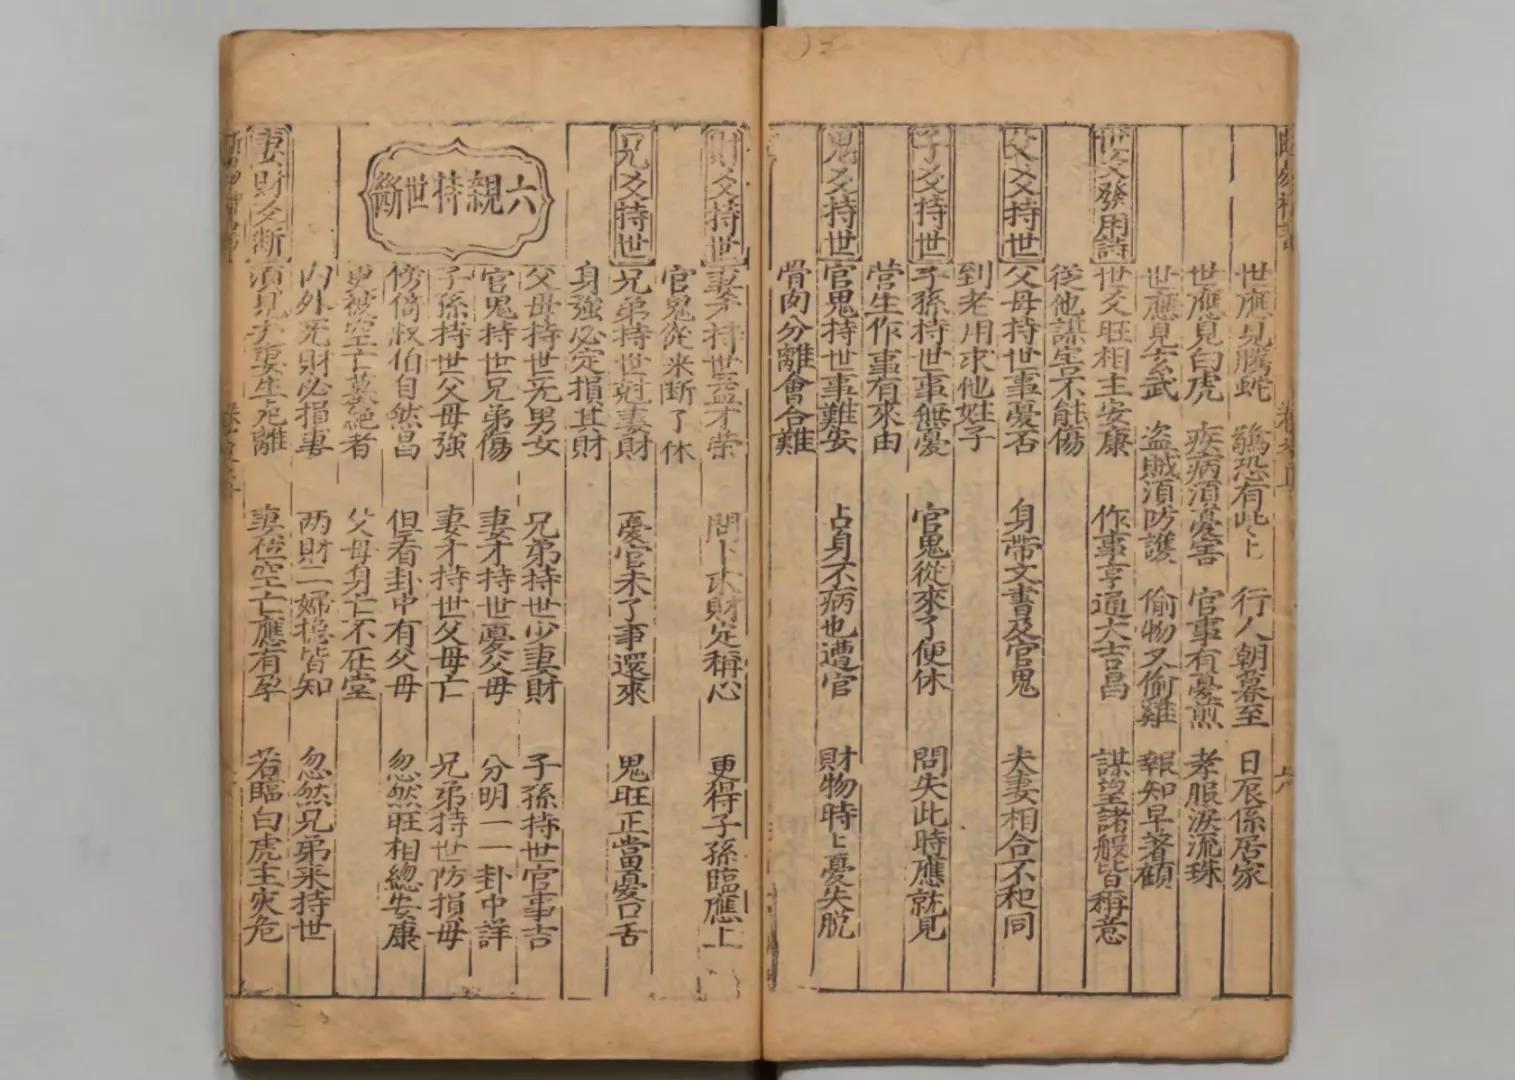 世應見騰蛇 驚恐有此上 行人朝暮至 日辰係居家
世應見白虎 疾病須憂害 官事有憂煎 孝服淚流珠
世應見玄武 盜賊須防護 偷物又偷雞 報知早著顧
世爻發用詩 世爻旺相主安康 作事亨通大吉昌 謀望諸般皆稱意
從他謀害不能傷
父爻持世 父母持世事憂否 身帶文書及官鬼 夫妻相合不和同
到老用求他姓子
子爻持世 子孫持世事無憂 官鬼從來了便休 問失此時應就見
營生作事有來由
鬼爻持世 官鬼持世事難安 占身不病也遭官 財物時上憂失脫
骨肉分離會合難
財爻持世 妻才持世益才榮 問卜求財定稱心 更得子孫臨應上
官鬼從來斷了休
兄爻持世 兄弟持世剋妻財 憂官未了事還來 鬼旺正當憂口舌
身強必定損其財
六親持世斷
父母持世无男女 兄弟持世少妻財 子孫持世官事吉
官鬼持世兄弟傷 妻才持世憂父母 分明一一卦中詳
子孫持世父母強 妻才持世父母亡 兄弟持世防損母
傍倚叔伯自然昌 但看卦中有父母 忽然旺相總安康
更被空亡墓絕者 父母身亡不在堂
內外无財必損妻 两財二婦總皆知 忽然兄弟來持世
妻財爻斷 須見夫妻生死離 妻位空亡應有孕 若臨白虎主灾危